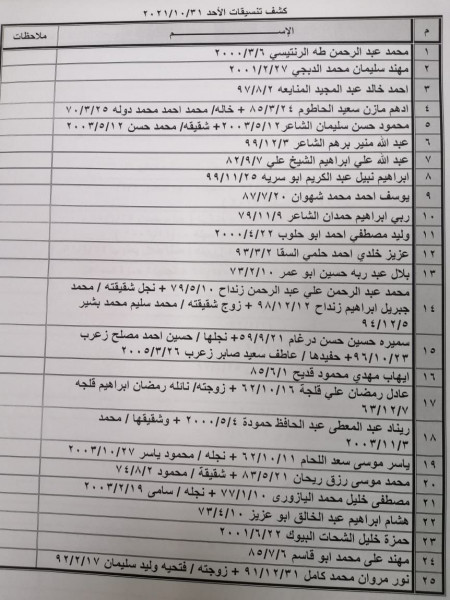 كشف تنسيقات الأحد ٢٠٢١/١٠/٣١
م الإســـــــم ملاحظات
١ محمد عبد الرحمن طه الرنتيسي ٢٠٠٠/٣/٦
٢ مهند سليمان محمد الدبجي ٢٠٠١/٢/٢٧
٣ احمد خالد عبد المجيد المنايعه ٩٧/٨/٢
٤ ادهم مازن سعيد الحاطوم ٨٥/٣/٢٤ + خاله/ محمد احمد محمد دوله ٧٠/٣/٢٥
٥ محمود حسن سليمان الشاعر ٢٠٠٣/٥/١٢+ شقيقه/ محمد حسن ٢٠٠٣/٥/١٢
٦ عبد الله منير برهم الشاعر ٩٩/١٢/٣
٧ عبد الله علي ابراهيم الشيخ علي ٨٢/٩/٧
٨ ابراهيم نبيل عبد الكريم ابو سريه ٩٩/١١/٢٥
٩ يوسف احمد محمد شهوان ٨٧/٧/٢٠
١٠ ربي ابراهيم حمدان الشاعر ٧٩/١١/٩
١١ وليد مصطفي احمد ابو حلوب ٢٠٠٠/٤/٢٢
١٢ عزيز خلدي احمد حلمي السقا ٩٣/٣/٢
١٣ بلال عبد ربه حسين ابو عمر ٧٣/٢/١٠
١٤ محمد عبد الرحمن علي عبد الرحمن زنداح ٧٩/٥/١٠ + نجل شقيقته / محمد
جبريل ابراهيم زنداح ٩٨/١٢/١٢ + زوج شقيقته / محمد سليم محمد بشير
٩٤/١٢/٥
١٥ سميره حسين حسن درغام ٥٩/٩/٢١+ نجلها / حسين احمد مصلح زعرب
٩٦/١٠/٢٣+ حفيدها / عاطف سعيد صابر زعرب ٢٠٠٥/٣/٢٦
١٦ ايهاب مهدي محمود قديح ٨٥/٦/١
١٧ عادل رمضان علي قلجة ٦٢/١٠/١٦ + زوجته/ نائله رمضان ابراهيم قلجه
٦٣/١٢/٧
١٨ ريناد عبد المعطى عبد الحافظ حمودة ٢٠٠٠/٥/٤ + وشقيقها / محمد
٢٠٠٣/١١/٣
١٩ ياسر موسى سعد اللحام ٦٢/١٠/١١ + نجله / محمود ياسر ٢٠٠٣/١٠/٢٧
٢٠ محمد موسى رزق ريحان ٨٣/٥/٢١ + شقيقة / محمود ٧٤/٨/٢
٢١ مصطفى خليل محمد اليازورى ٧٧/١/١٠ + نجله / سامى ٢٠٠٣/٢/١٩
٢٢ هشام ابراهيم عبد الخالق ابو عزيز ٧٣/٤/١٠
٢٣ حمزة خليل الشحات البيوك ٢٠٠١/٦/٢٢
٢٤ مهند على محمد ابو قاسم ٨٥/٧/٦
٢٥ نور مروان محمد كامل ٩١/١٢/٣١ + زوجته / فتحيه وليد سليمان ٩٢/٢/١٧